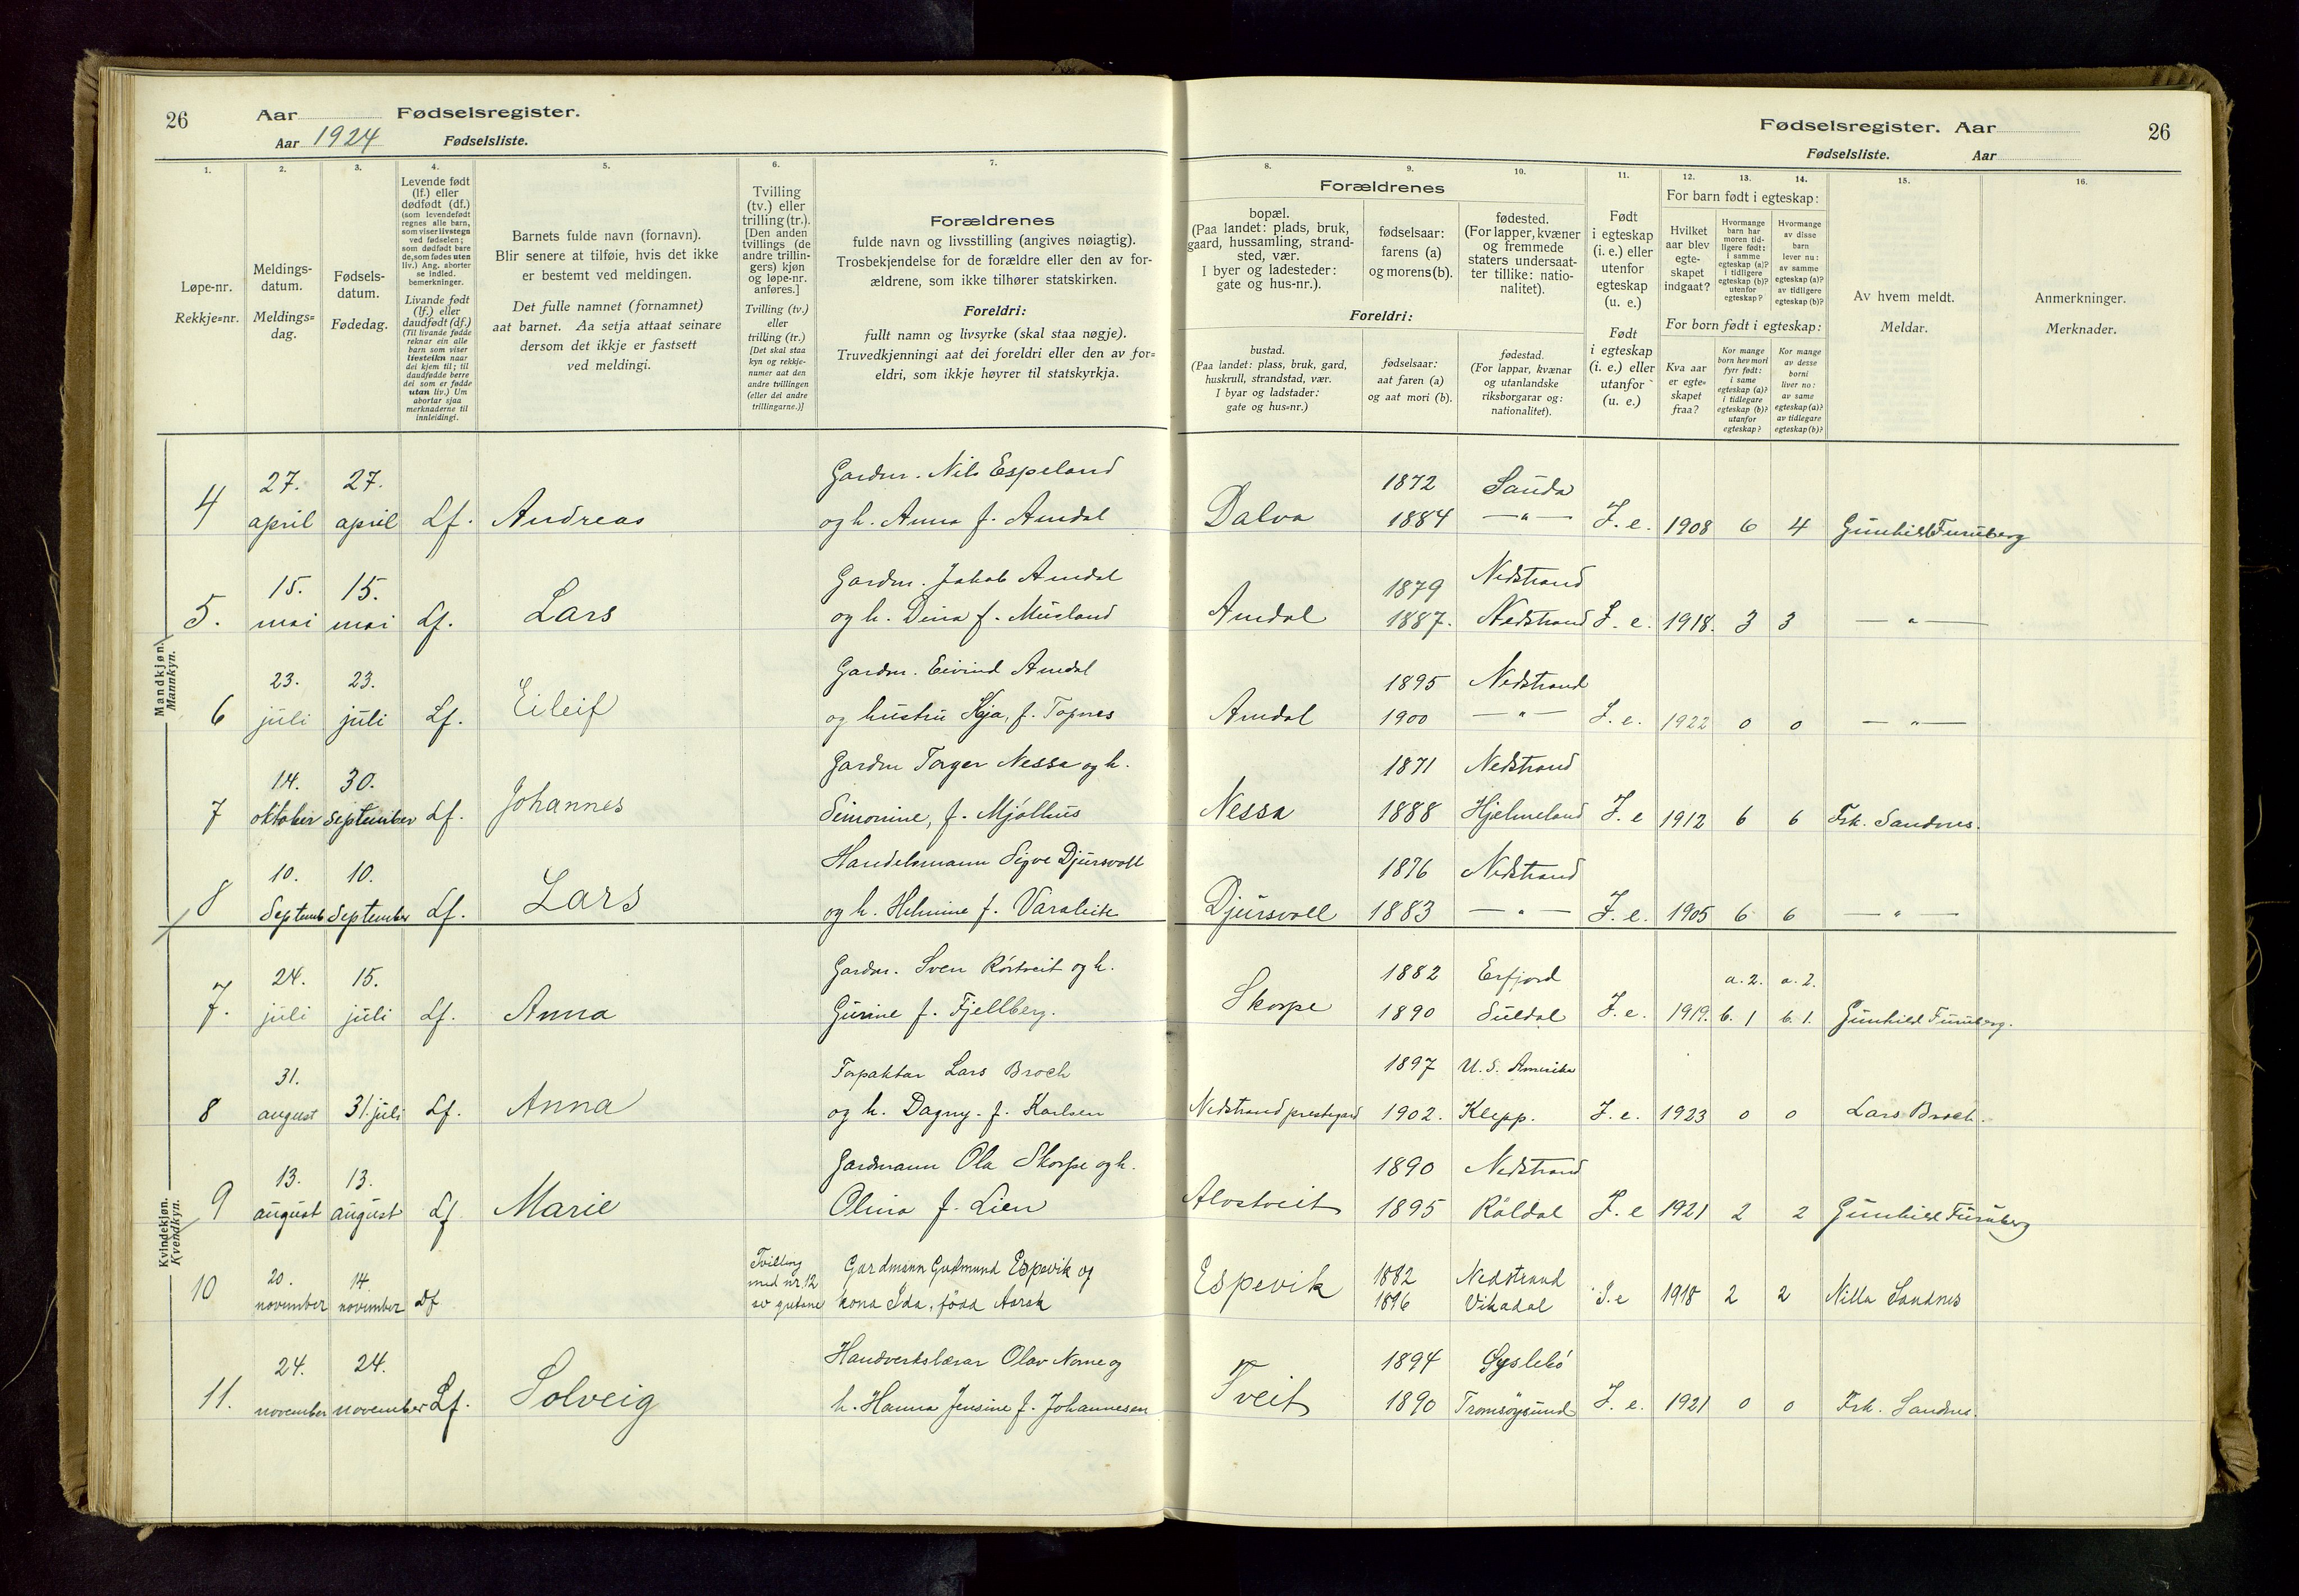 26
Aar
Fødselsregister.
Aar 1924
Fødselsliste.
Fødselsregister. Aar
26
Fødselsliste.
Aar
1.
Løpe-nr.
Rekkje=nr.
2.
Meldings-
datum.
Meldings=
dag.
3.
Fødsels-
datum.
Fødedag.
4.
Levende født
(lf.) eller
dødfødt (df.)
(som levendefødt
regnes alle barn,
som viser livstegn
ved fødselen;
som dødfødt bare
de, som fødes uten
liv.) Ang. aborter
se indled.
bemerkninger.
Livande født
(lf.) eller
daudfødt (df.)
(Til livande fødde
reknar ein alle
barn som viser
livsteikn naar
dei kjem til; til
daudfødde berre
dei som er fødde
utan liv.) Um
abortar sjaa
merknaderne til
innleidingi.
5.
Barnets fulde navn (fornavn).
Blir senere at tilføie, hvis det ikke
er bestemt ved meldingen.
Det fulle namnet (fornamnet)
aat barnet. Aa setja attaat seinare
dersom det ikkje er fastsett
ved meldingi.
6.
Tvilling
(tv.) eller
trilling (tr.).
[Den anden
tvillings (de
andre trillin-
gers) kjøn
og løpe-nr.
anføres.]
Tvilling (tv.)
eller
trilling (tr.)
[Det skal staa
kyn og rekkje-
numer aat den
andre tvillingen
(eller dei andre
trillingarne.)]
7.
Forældrenes
fulde navn og livsstilling (angives nøiagtig).
Trosbekjendelse for de forældre eller den av for-
ældrene, som ikke tilhører statskirken.
Foreldri:
fullt namn og livsyrke (skal staa nøgje).
Truvedkjenningi aat dei foreldri eller den av for=
eldri, som ikkje høyrer til statskyrkja.
8.
Forældrenes
bopæl.
(Paa landet: plads, bruk,
gaard, hussamling, strand-
sted, vær.
I byer og ladesteder:
gate og hus-nr.).
Foreldri:
bustad.
(Paa landet: plass, bruk, gard,
huskrull, strandstad, vær.
I byar og ladstader:
gate og hus=nr.)
9.
fødselsaar:
farens (a)
og morens (b).
fødselsaar:
aat faren (a)
og aat mori (b).
10.
fødested.
(For lapper, kvæner
og fremmede
staters undersaat-
ter tillike: natio-
nalitet).
fødestad.
(For lappar, kvænar
og utanlandske
riksborgarar og:
nationalitet).
11.
Født
i egteskap
(i. e.) eller
utenfor
egteskap
(u. e.)
Født
i egteskap
(i. e.) eller
utanfor
(u. e.)
12.
13.
14.
For barn født i egteskap:
Hvilket
aar blev
egte-
skapet
indgaat?
Hvormange
barn har
moren tid-
ligere født:
i samme
egteskap (a)?
i tidligere
egteskap (b)?
utenfor
egteskap?
Hvormange
av disse
barn
lever nu:
av samme
egteskap (a)?
av tidligere
egteskap (b)?
For born født i egteskap:
Kva aar
er egte=
skapet
fraa?
Kor mange
born hev mori
fyrr født:
i same
egteskap (a)?
i tidlegare
egteskap (b)?
utanfor
egteskap?
Kor mange
av desse
borni
liver no:
av same
egteskap (a)?
av tidlegare
egteskap (b)?
15.
Av hvem meldt.
Meldar.
16.
Anmerkninger.
Merknader.
Mandkjøn.
Mannkyn.
27. 27. Gardm. Nils Espeland 1872 Sauda
4 april april Lf. Andreas og h. Anna f. Amdal Dalva 1884 — " — I. e. 1908 6 4 Gunhild Furuberg
15. 15. Gardm. Jakob Amdal 1879 Nedstrand
5. mai mai Lf. Lars og h. Dina f. Musland Amdal 1887. Nedstrand I. e. 1918. 3 3 — " —
23. 23. Gardm. Eivind Amdal 1895 Nedstrand
6 juli juli Lf. Eileif og hustru Kja, f. Topnes Amdal 1900 — " — I. e. 1922 0 0 — " —
14. 30. Gardm Torger Nessa og h. 1871 Nedstrand
7 oktober September Lf. Johannes Simonine, f. Mjølhus Nessa 1888 Hjelmeland I. e 1912 6 6 Frk. Sandnes.
10. 10. Handelsmann Sigve Djursvoll 1876 Nedstrand
8 Septemb September Lf. Lars og h. Helmine f. Varaleite Djursvoll 1883 — " — I. e. 1905 6 6 — " —
Kvindekjøn.
Kvendkyn.
24. 15. Gardm. Sven Rørtveit og h. 1882 Erfjord a. 2. a. 2.
7. juli juli Lf. Anna Gurine f. Fjellberg. Skorpe 1890 Suldal I. e. 1919. b. 1 b. 1. Gunhild Furuberg.
31. Forpaktar Lars Broch 1897 U. S. Amerika
8 august 31. juli Lf. Anna og h. Dagny. f. Karlsen Nedstrand prestegard 1902. Klepp. I. e. 1923 0 0 Lars Broch.
13. 13. Gardmann Ola Skorpe og h. 1890 Nedstrand
9 august august Lf Marie Olina f. Lien Alvstveit 1895 Røldal I. e 1921 2 2 Gunhild Furuberg
20. 14. Tvilling med nr. 12 av gutane Gardmann Gudmund Espevik og 1882 Nedstrand
10 november november Df kona Ida, född Aarsk Espevik 1896 Vikadal I. e 1918 2 2 Nilla Sandnes
24. 24. Handverkslærar Olav Nome og 1894 Øyslebø
11. november november Lf. Solveig h. Hanna Jensine f. Johannesen Tveit 1890 Tromsøysund I. e. 1921 0 0 Frk. Sandnes.